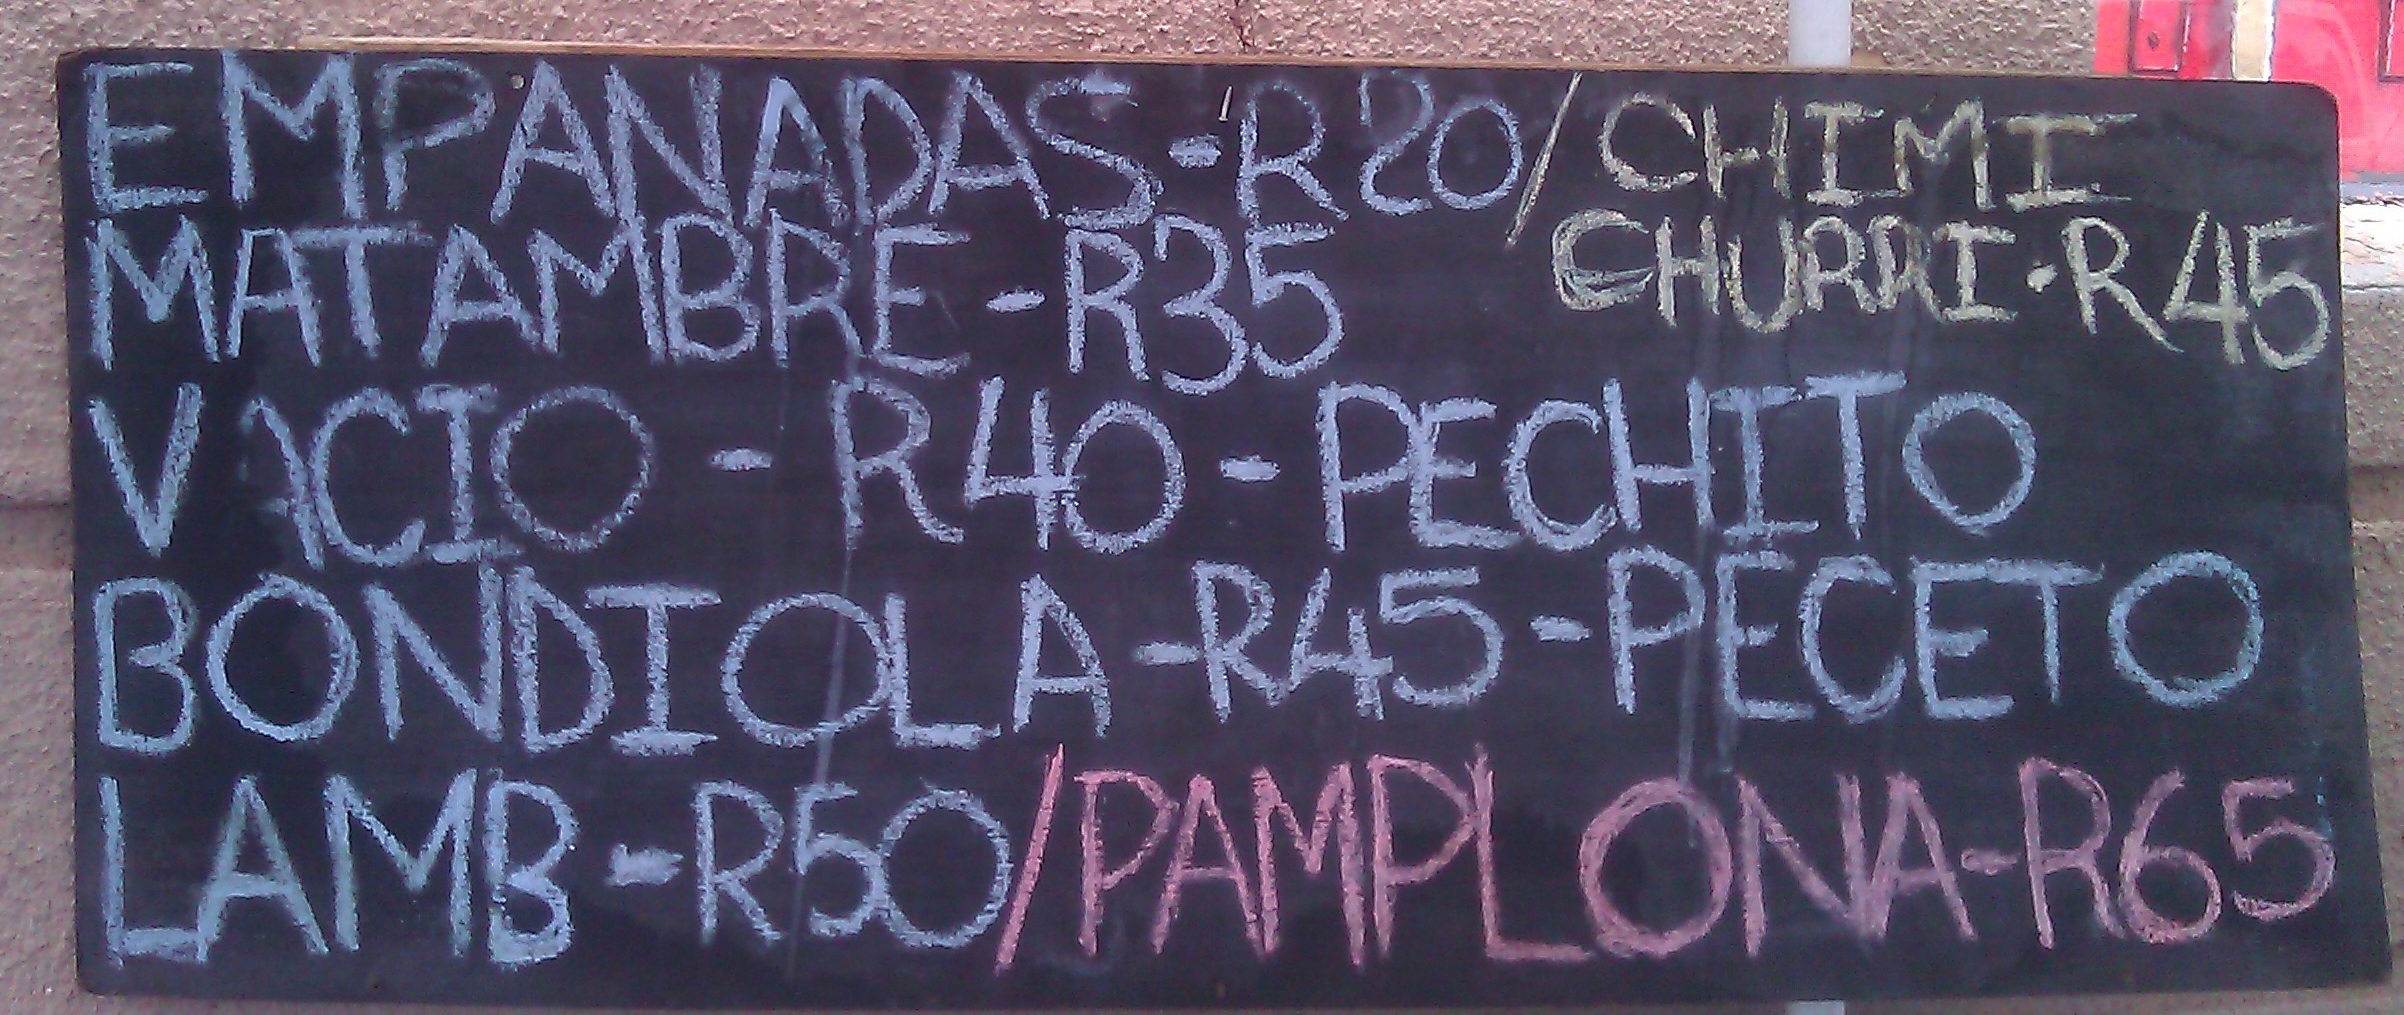 EMPANADAS-R20/CHIMI
CHURRI·R45
MATAMBRE-R35
VACIO - R40 - PECHITO
BONDIOLA-R45-PECETO
LAMB-R50/PAMPLONA-R65